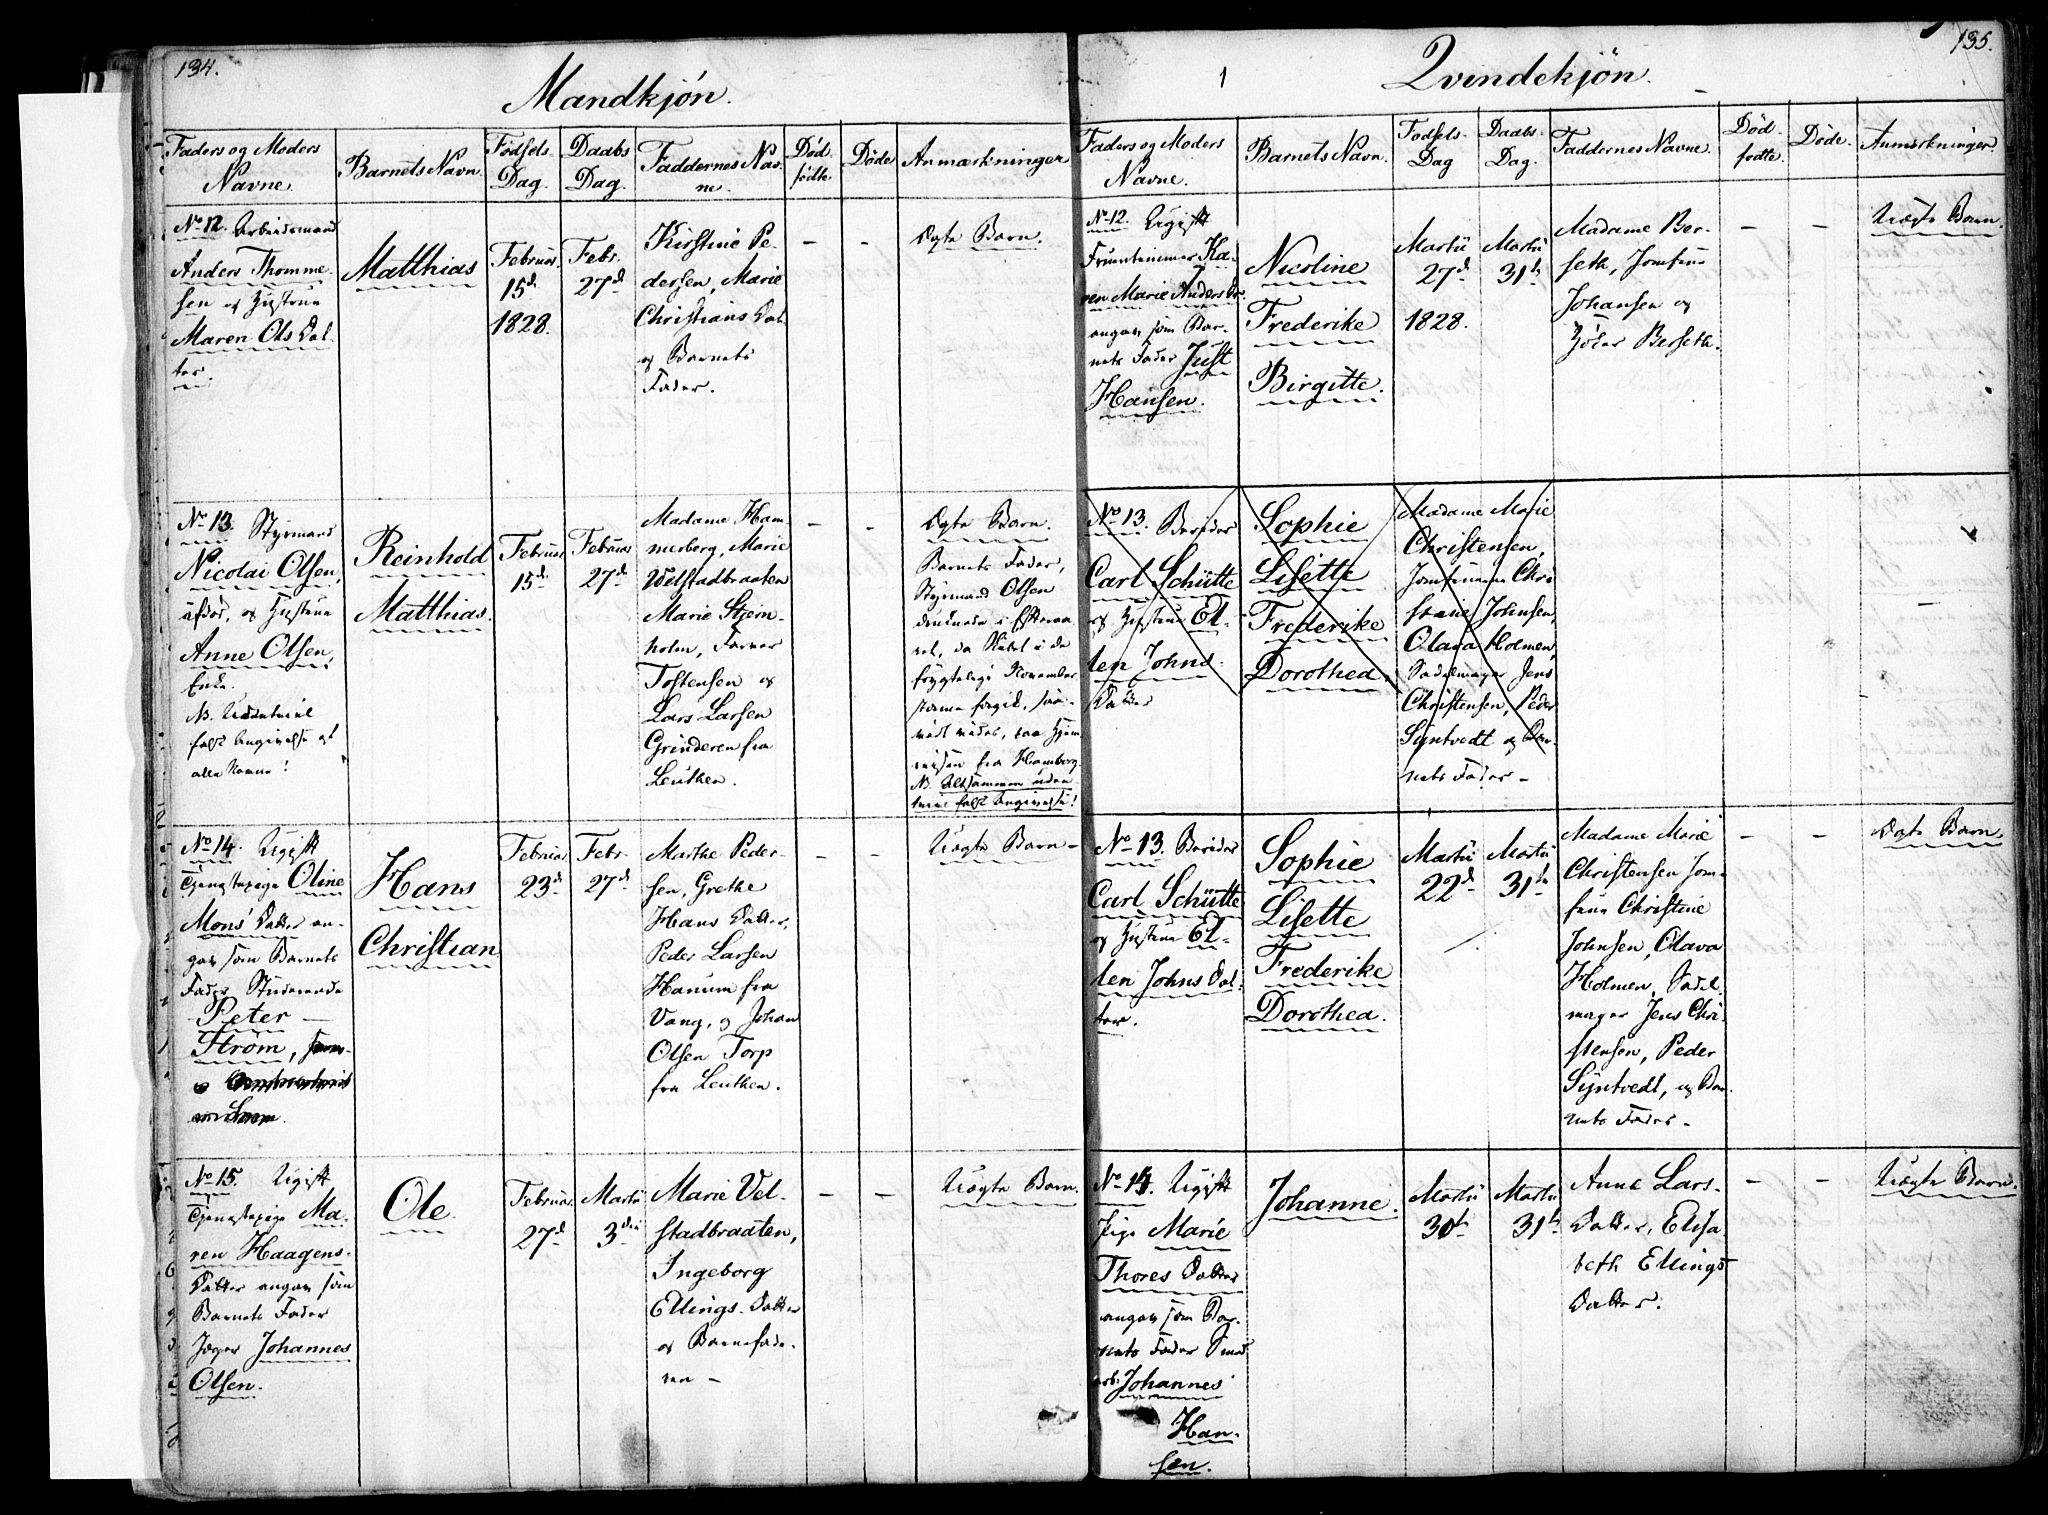 134.
Mandkjön.
Faders og Moders
Navne.
Barnets Navn.
Fødsels
Dag.
Daabs
Dag.
Faddernes Nav-
ne.
Død
fødte
Døde
Anmærkninger
No 12. Arbeidsmand
Anders Thomme-
sen og Hustrue
Maren Ols Dat-
ter.
Matthias
Februar.
15d.
1828.
Febr.
27d
Kirstine Pe-
dersen, Marie
Christians Dat.
og Barnets
Fader.
-
-
Ægte Barn.
No 13. Styrmand
Nicolai Olsen,
afdød, og Hustrue
Anne Olsen,
Enke.
NB.
falsk Angivelse af
alle Navne!
Reinhold
Matthias.
Februar
15d.
Februar
27d
Madame Ham-
merberg, Marie
Velstadbraaten
Marie Stjern-
holm, Farver
Tostensen og
Lars Larsen
Grinderen fra
Leuthen.
-
-
Ægte Barn.
Barnets Fader,
Styrmand Olsen
druknede i Efteraa-
ret, da Skibet i de
frygtelige November
storme forgik,
fra Hamborg.
NB. Altsammen
falsk Angivelse!
No 14. Ugift
Tjenestepige Oline
Mons' Datter an-
gav som Barnets
Fader Studerende
Peter
Strøm,
Hans
Christian
Februar
23d
Febr.
27d
Marthe Peder-
sen, Grethe
Hans Datter,
Peder Larsen
Hanum fra
Vang, og Johan
Olsen Torp
fra Leuthen.
-
-
Uægte Barn -
No 15. Ugift
Tjenestepige Ma-
ren Haagens-
Datter angav som
Barnets Fader
Jæger Johannes
Olsen.
Ole
Februar
27d
Martii
3die
Marie Vel-
stadbraaten,
Ingeborg
Ellings-Datter
og Barnefade-
ren -
-
-
Uægte Barn.
135.
1
Qvindekjön.
Faders og Moders
Navne.
Barnets Navn.
Fødsels-
Dag
Daabs-
Dag.
Faddernes Navne.
Død-
fødte
Døde.
Anmærkninger.
No 12. Ugift
Fruentimmer Ka-
ren Marie Anders Dr.
angav som Bar-
nets Fader Just
Hansen.
Nicoline
Frederike
Birgitte.
Martii
27d
1828.
Martii
31te
Madame Ber-
seth, Jomfrue
Johansen og
Berseth.
-
-
Uægte Barn.
No 13. Berider
Carl Schütte
og Hustrue El-
len Johns-
Datter
Sophie
Lisette
Frederike
Dorothea.
Madame Marie
Christensen,
Jomfruerne Chri
stine Johnsen,
Olava Holmen,
Sadelmager Jens
Christensen, Peder
Syntvedt og Bar-
nets Fader -
No 13. Berider
Carl Schütte
og Hustrue El-
len Johns Dat-
ter.
Sophie
Lisette
Frederike
Dorothea.
Martii
22d
Martii
31te
Madame Marie
Christensen Jom-
frue Christine
Johnsen, Olava
Holmen, Sadel
mager Jens Chri-
stensen, Peder
Syntvedt, og Bar-
nets Fader -
-
-
Ægte Barn.
No 14. Ugift
Pige Marie
Thores Datter
angav som Bar-
nets Fader
Johannes
Han-
sen.
Johanne.
Martii
30te
Martii
31te
Anne Lars-
Datter, Elisa-
beth Ellings-
Datter.
-
-
Uægte Barn.